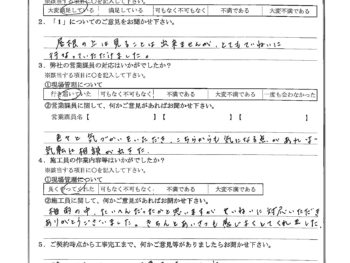 大変満足している 満足している 可もなく不可もなく 不満である 大変不満である
2．「1」についてのご意見をお聞かせ下さい。
屋根の上は見ることは出来ませんが、とてもていねいに
行なっていただけました。
3．弊社の営業課員の対応はいかがでしたか?
※該当する項目に○を記入して下さい。
①現場管理について
行き届いていた 可もなく不可もなく 不満である 大変不満である 一度も会わなかった
②営業課員に関して、何かご意見があればお聞かせ下さい。
営業課員名【 】【 】【 】
色々と気づかいをいただき、こちらからも気になる点があれば
気軽に相談が出来た。
4．施工員の作業内容等はいかがでしたか?
※該当する項目に○を記入して下さい。
①現場管理について
良くやってくれた 可もなく不可もなく 不満である 大変不満である
②施工員に関して、何かご意見があればお聞かせ下さい。
の中、たいへんだったかと思いますが、ていねいに対応いただき
ありがとうございました。きちんとあいさつも感じよくしてくれました。
5．ご契約時点から工事完工まで、何かご意見等がありましたらお聞かせ下さい。